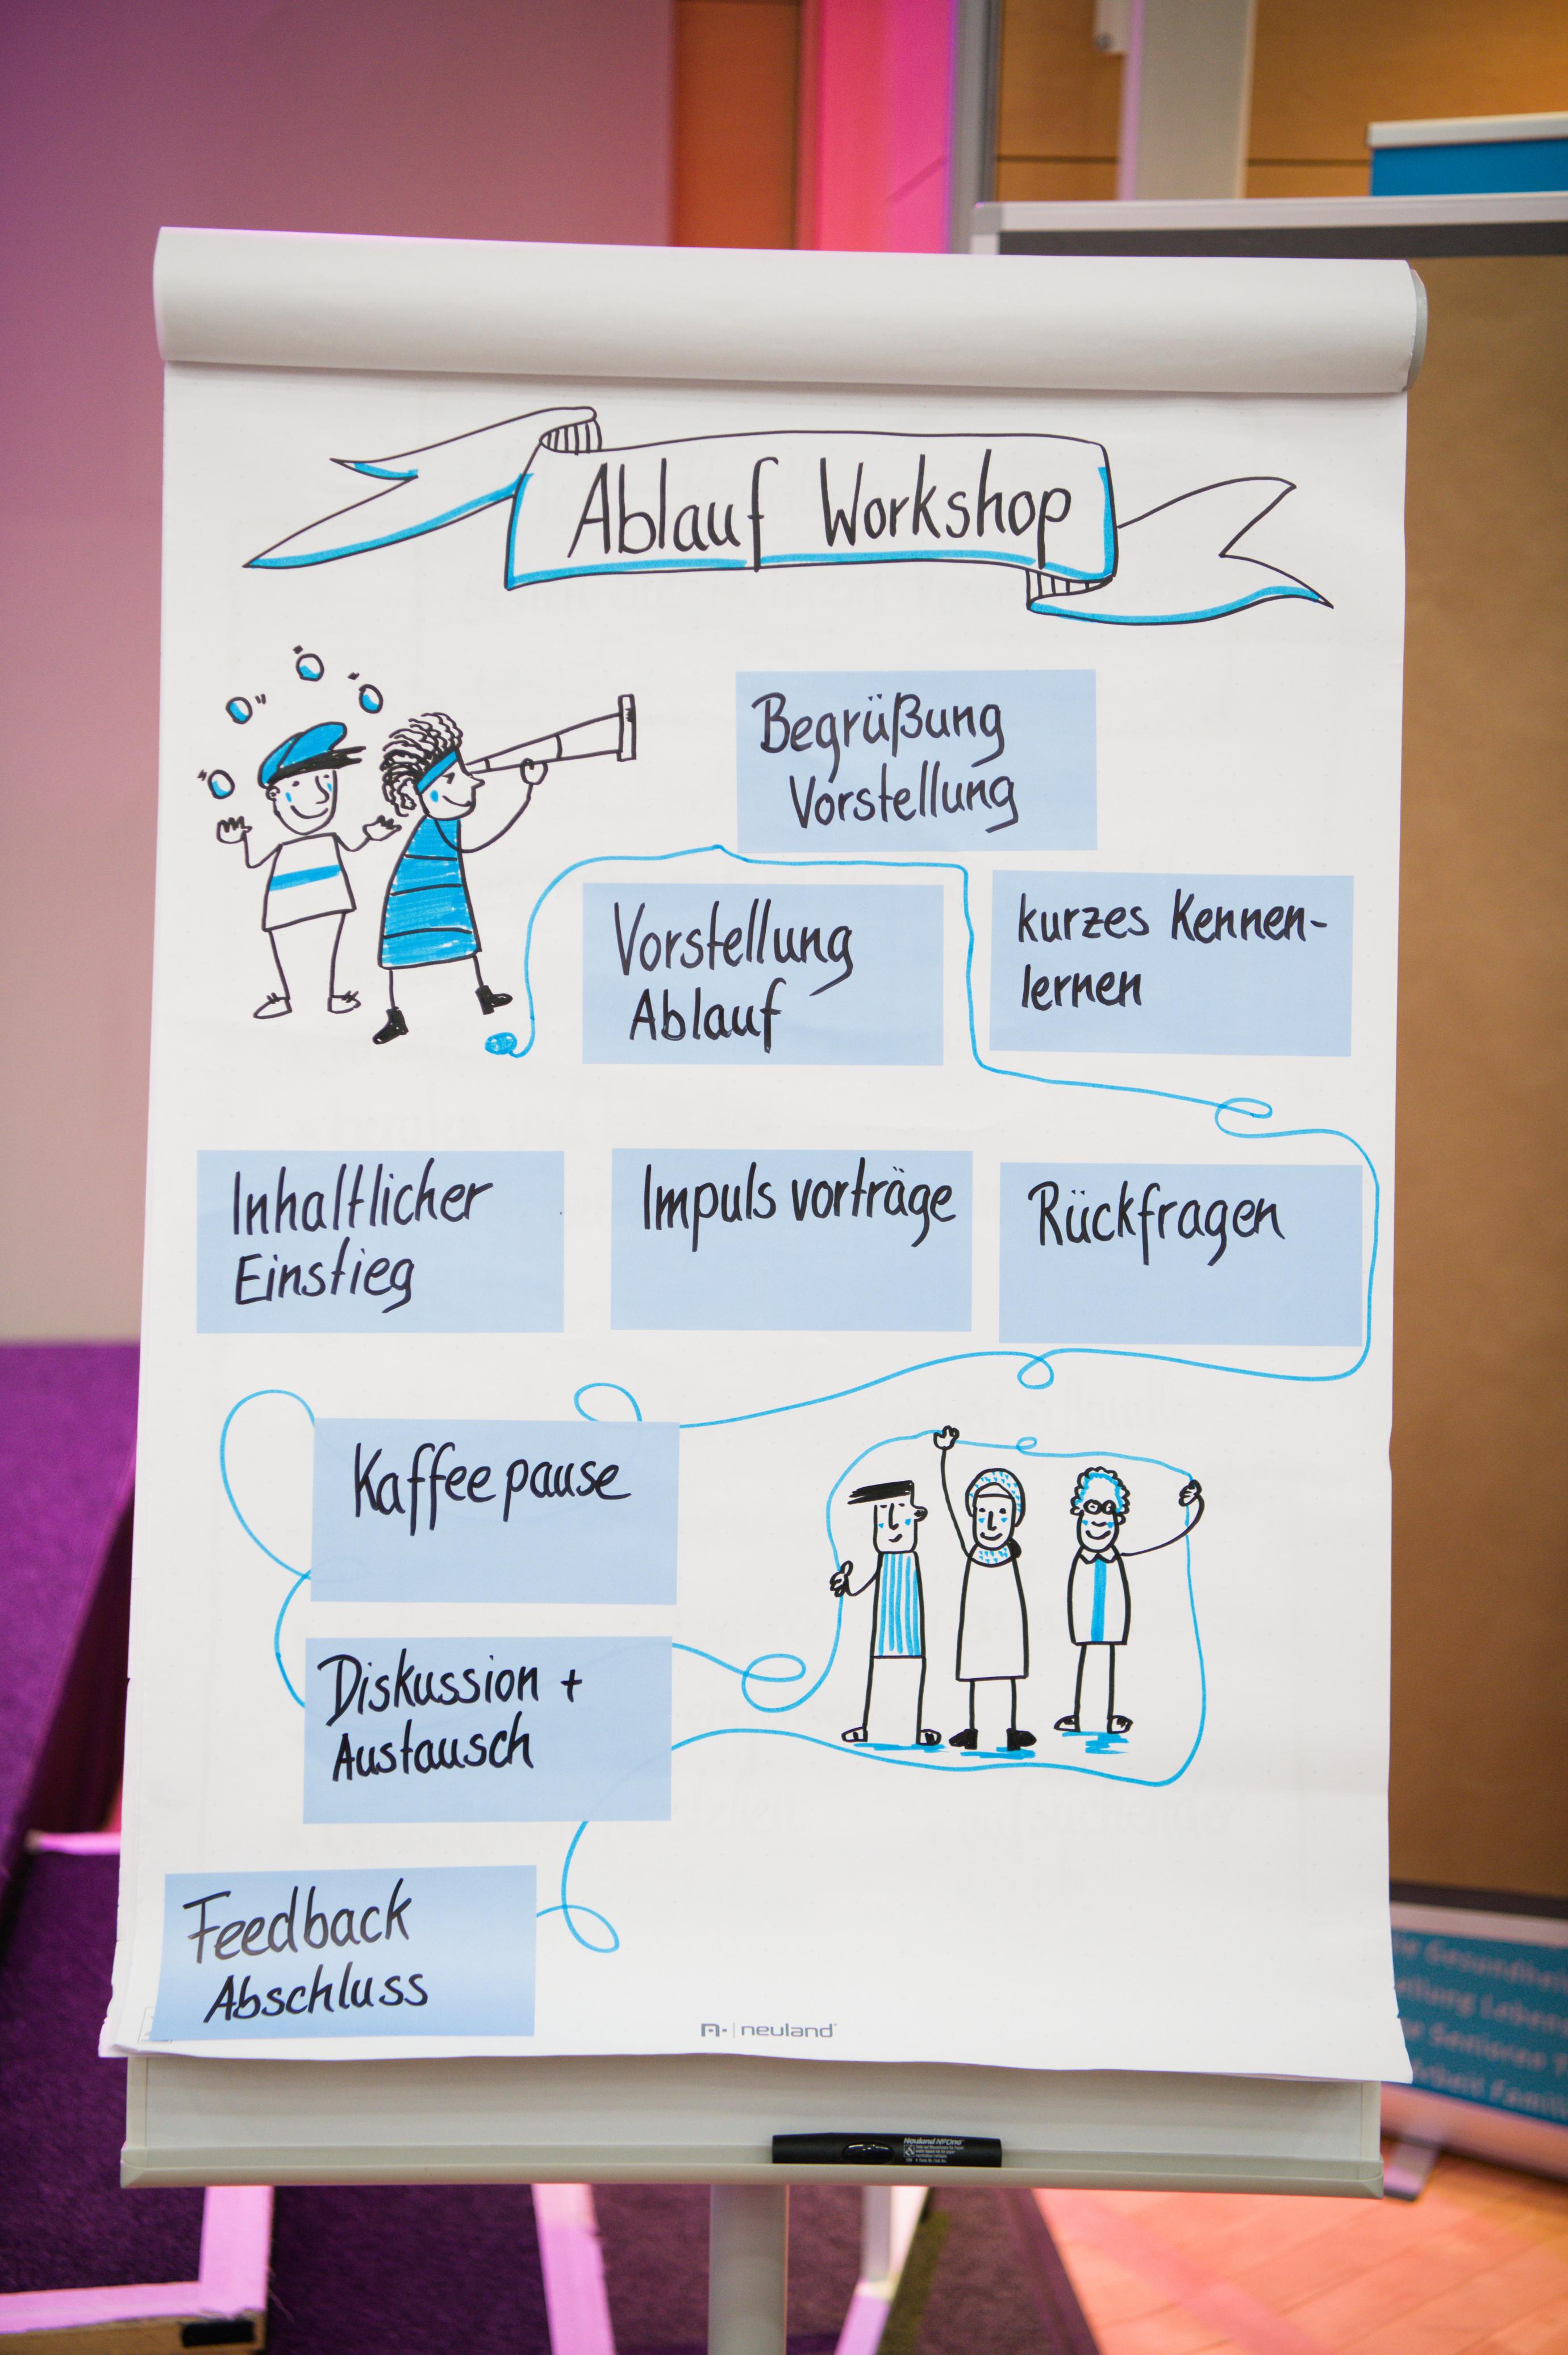 Ablauf Workshop
Begrüßung
Vorstellung
Vorstellung
Ablauf
kurzes Kennen-
lernen
Inhaltlicher
Einstieg
Impulsvorträge
Rückfragen
Kaffeepause
Diskussion +
Austausch
Feedback
Abschluss
neuland
Neuland NºOne